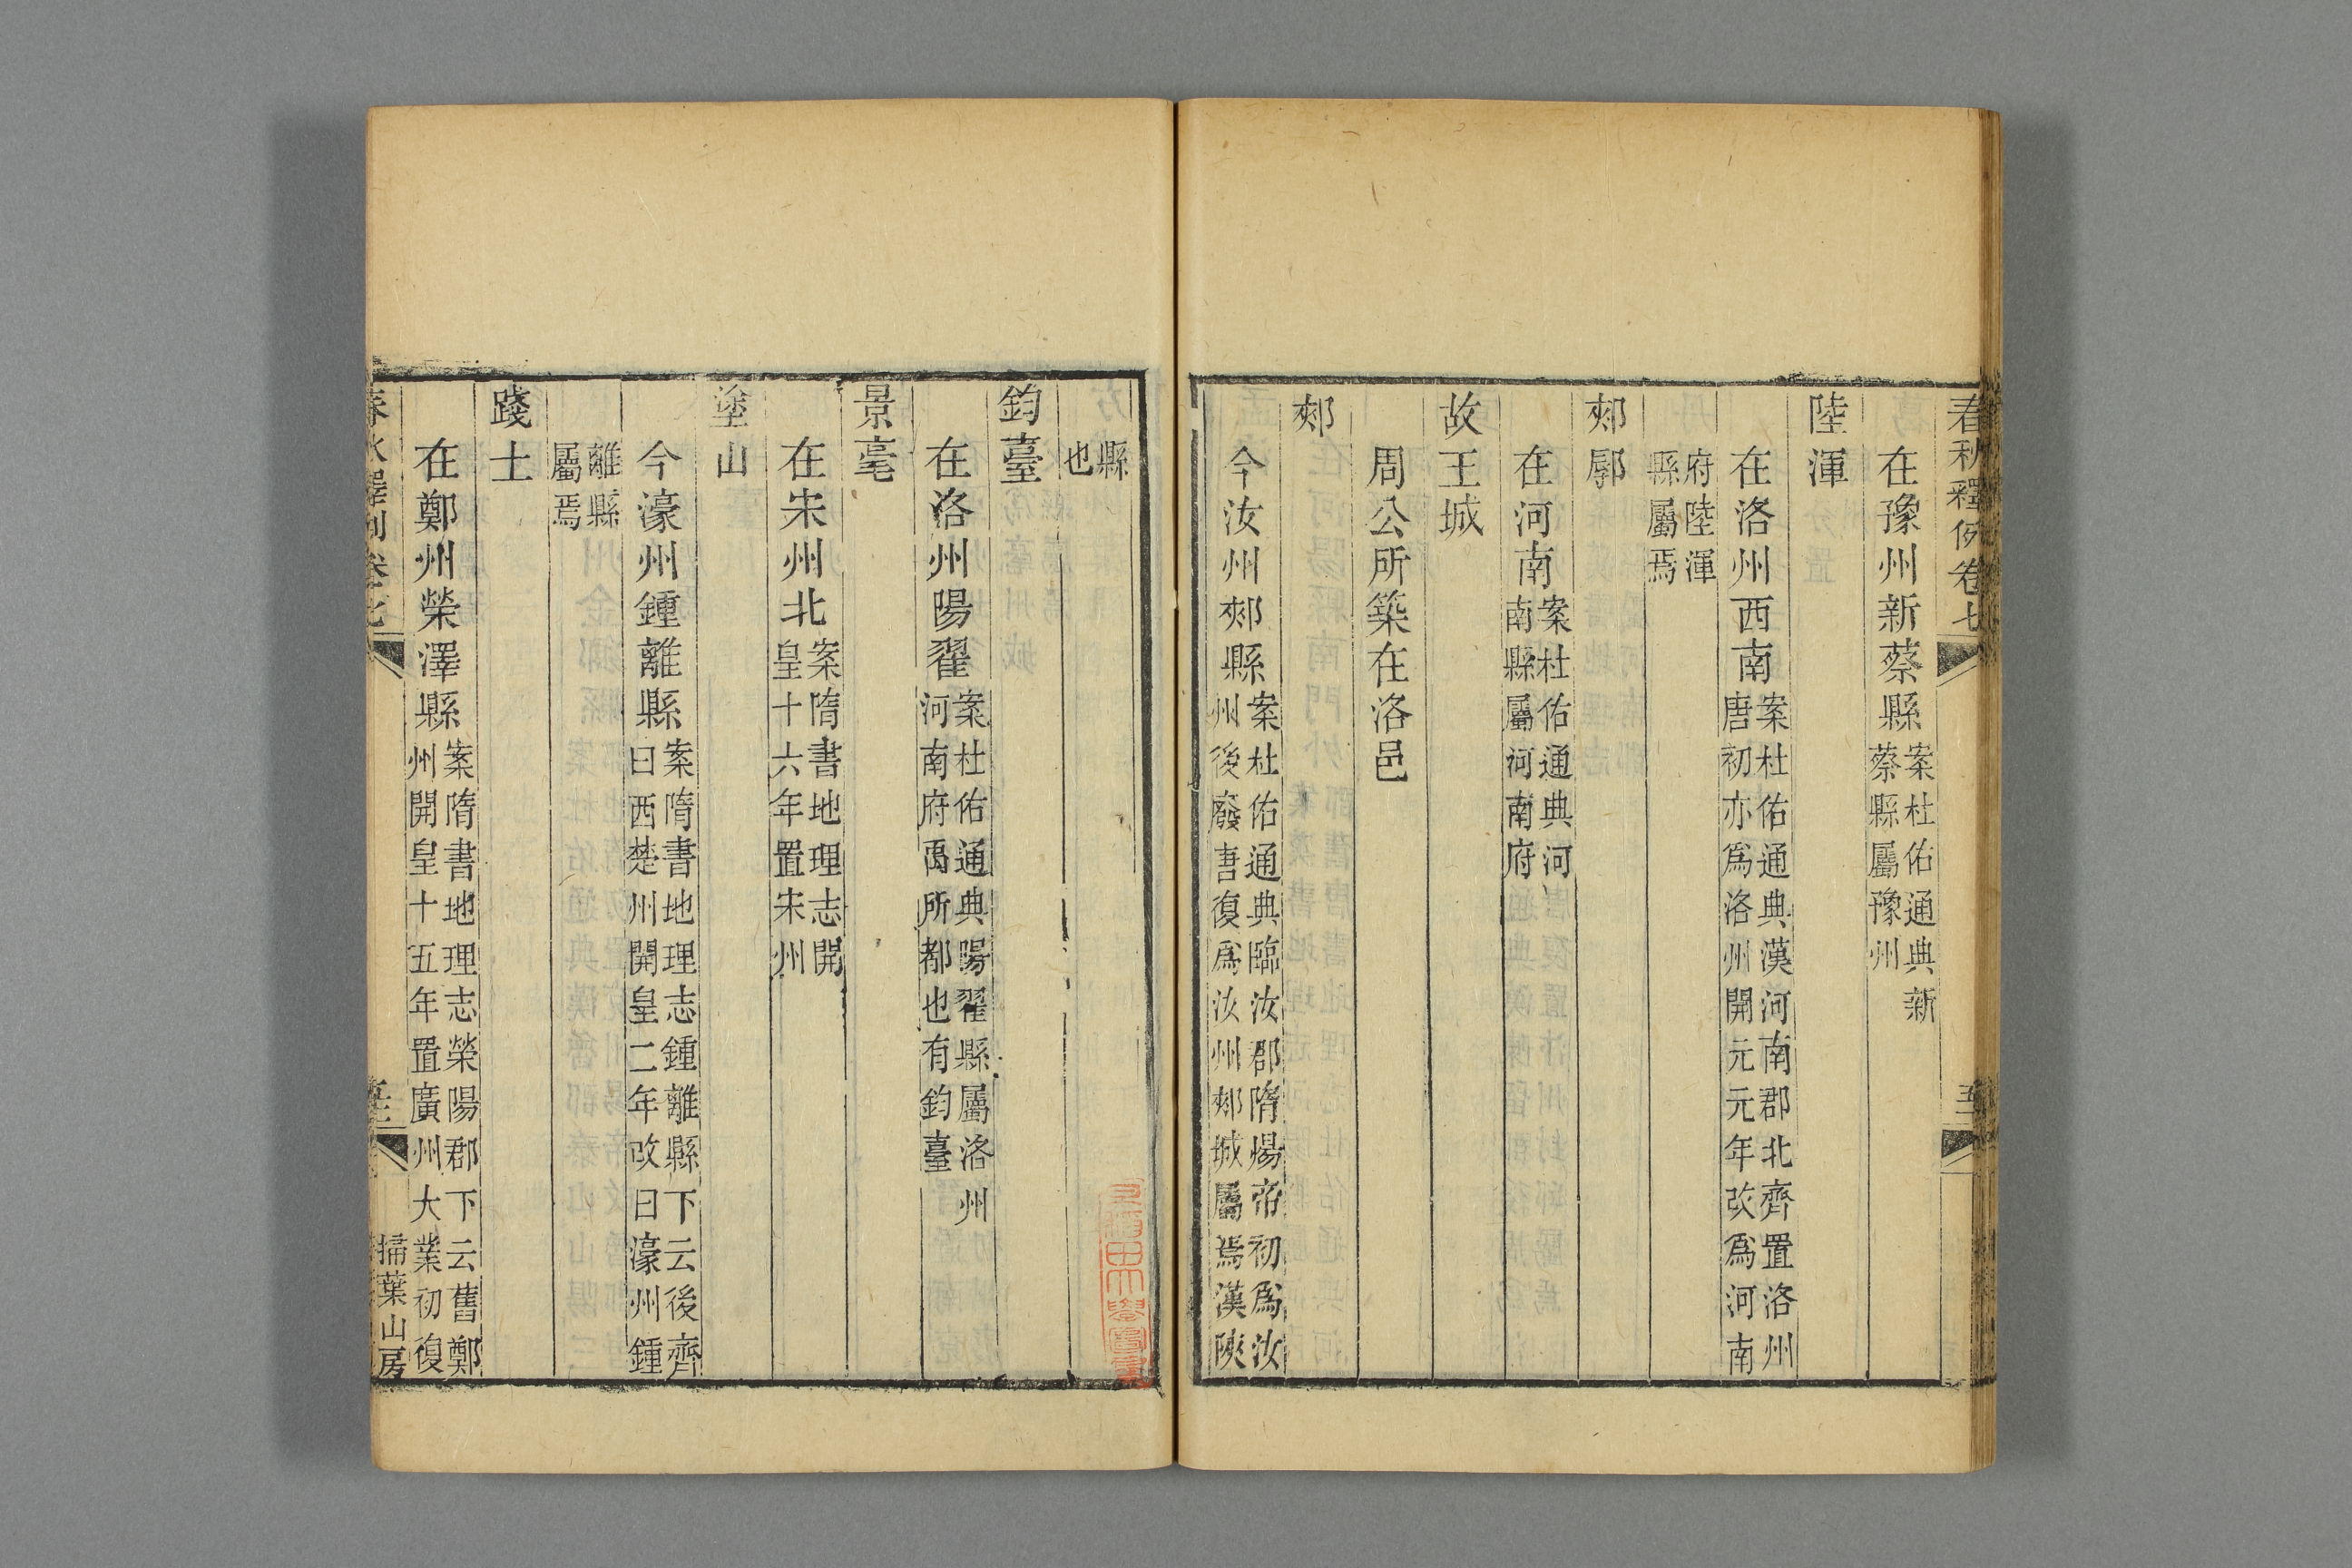 春秋釋例卷七
五
在豫州新蔡縣案杜佑通典新蔡縣屬豫州
陸渾
在洛州西南案杜佑通典漢河南郡北齊置洛州唐初亦爲洛州開元元年改爲河南
府陸渾縣屬焉
郟鄏
在河南案杜佑通典河南縣屬河南府
故王城
周公所築在洛邑
郟
今汝州郟縣案杜佑通典臨汝郡隋煬帝初爲汝州後廢唐復爲汝州郟城屬焉漢陝
縣也
鈞臺
在洛州陽翟案杜佑通典陽翟縣屬洛州河南府禹所都也有鈞臺
景亳
在宋州北案隋書地理志開皇十六年置宋州
塗山
今濠州鍾離縣案隋書地理志鍾離縣下云後齊曰西楚州開皇二年改曰濠州鍾
離縣屬焉
踐土
在鄭州滎澤縣案隋書地理志滎陽郡下云舊鄭州開皇十五年置廣州大業初復
春秋釋例卷七
掃葉山房